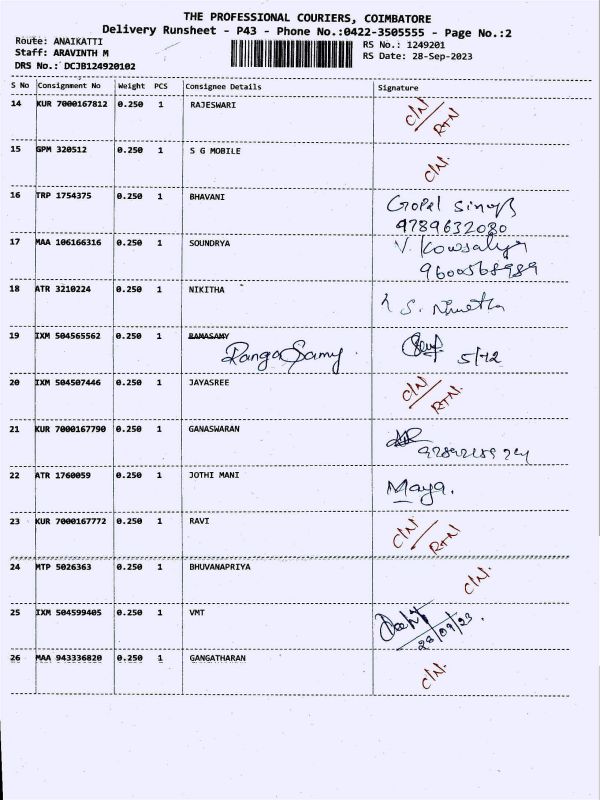 THE PROFESSIONAL COURIERS, COIMBATORE
Delivery Runsheet - P43 - Phone No.:0422-3505555 - Page No.:2
Route: ANAIKATTI
RS No.: 1249201
Staff: ARAVINTH M
RS Date: 28-Sep-2023
DRS No.: DCJB124920102
S No Consignment No Weight PCS Consignee Details Signature
14 KUR 7000167812 0.250 1 RAJESWARI C/N/RTN
15 GPM 320512 0.250 1 S G MOBILE C/N.
16 TRP 1754375 0.250 1 BHAVANI Gopal Singh
9789632080
17 MAA 106166316 0.250 1 SOUNDRYA V. Kowsalya
9600568989
18 ATR 3210224 0.250 1 NIKITHA S.
19 IXM 504565562 0.250 1 RAMASAMY
RangaSamy. 5/12
20 IXM 504507446 0.250 1 JAYASREE C/N/RTN.
21 KUR 7000167790 0.250 1 GANASWARAN
22 ATR 1760059 0.250 1 JOTHI MANI Maya.
23 KUR 7000167772 0.250 1 RAVI C/N/RTN
24 MTP 5026363 0.250 1 BHUVANAPRIYA C/N.
25 IXM 504599405 0.250 1 VMT
28/09/23.
26 MAA 943336820 0.250 1 GANGATHARAN C/N.